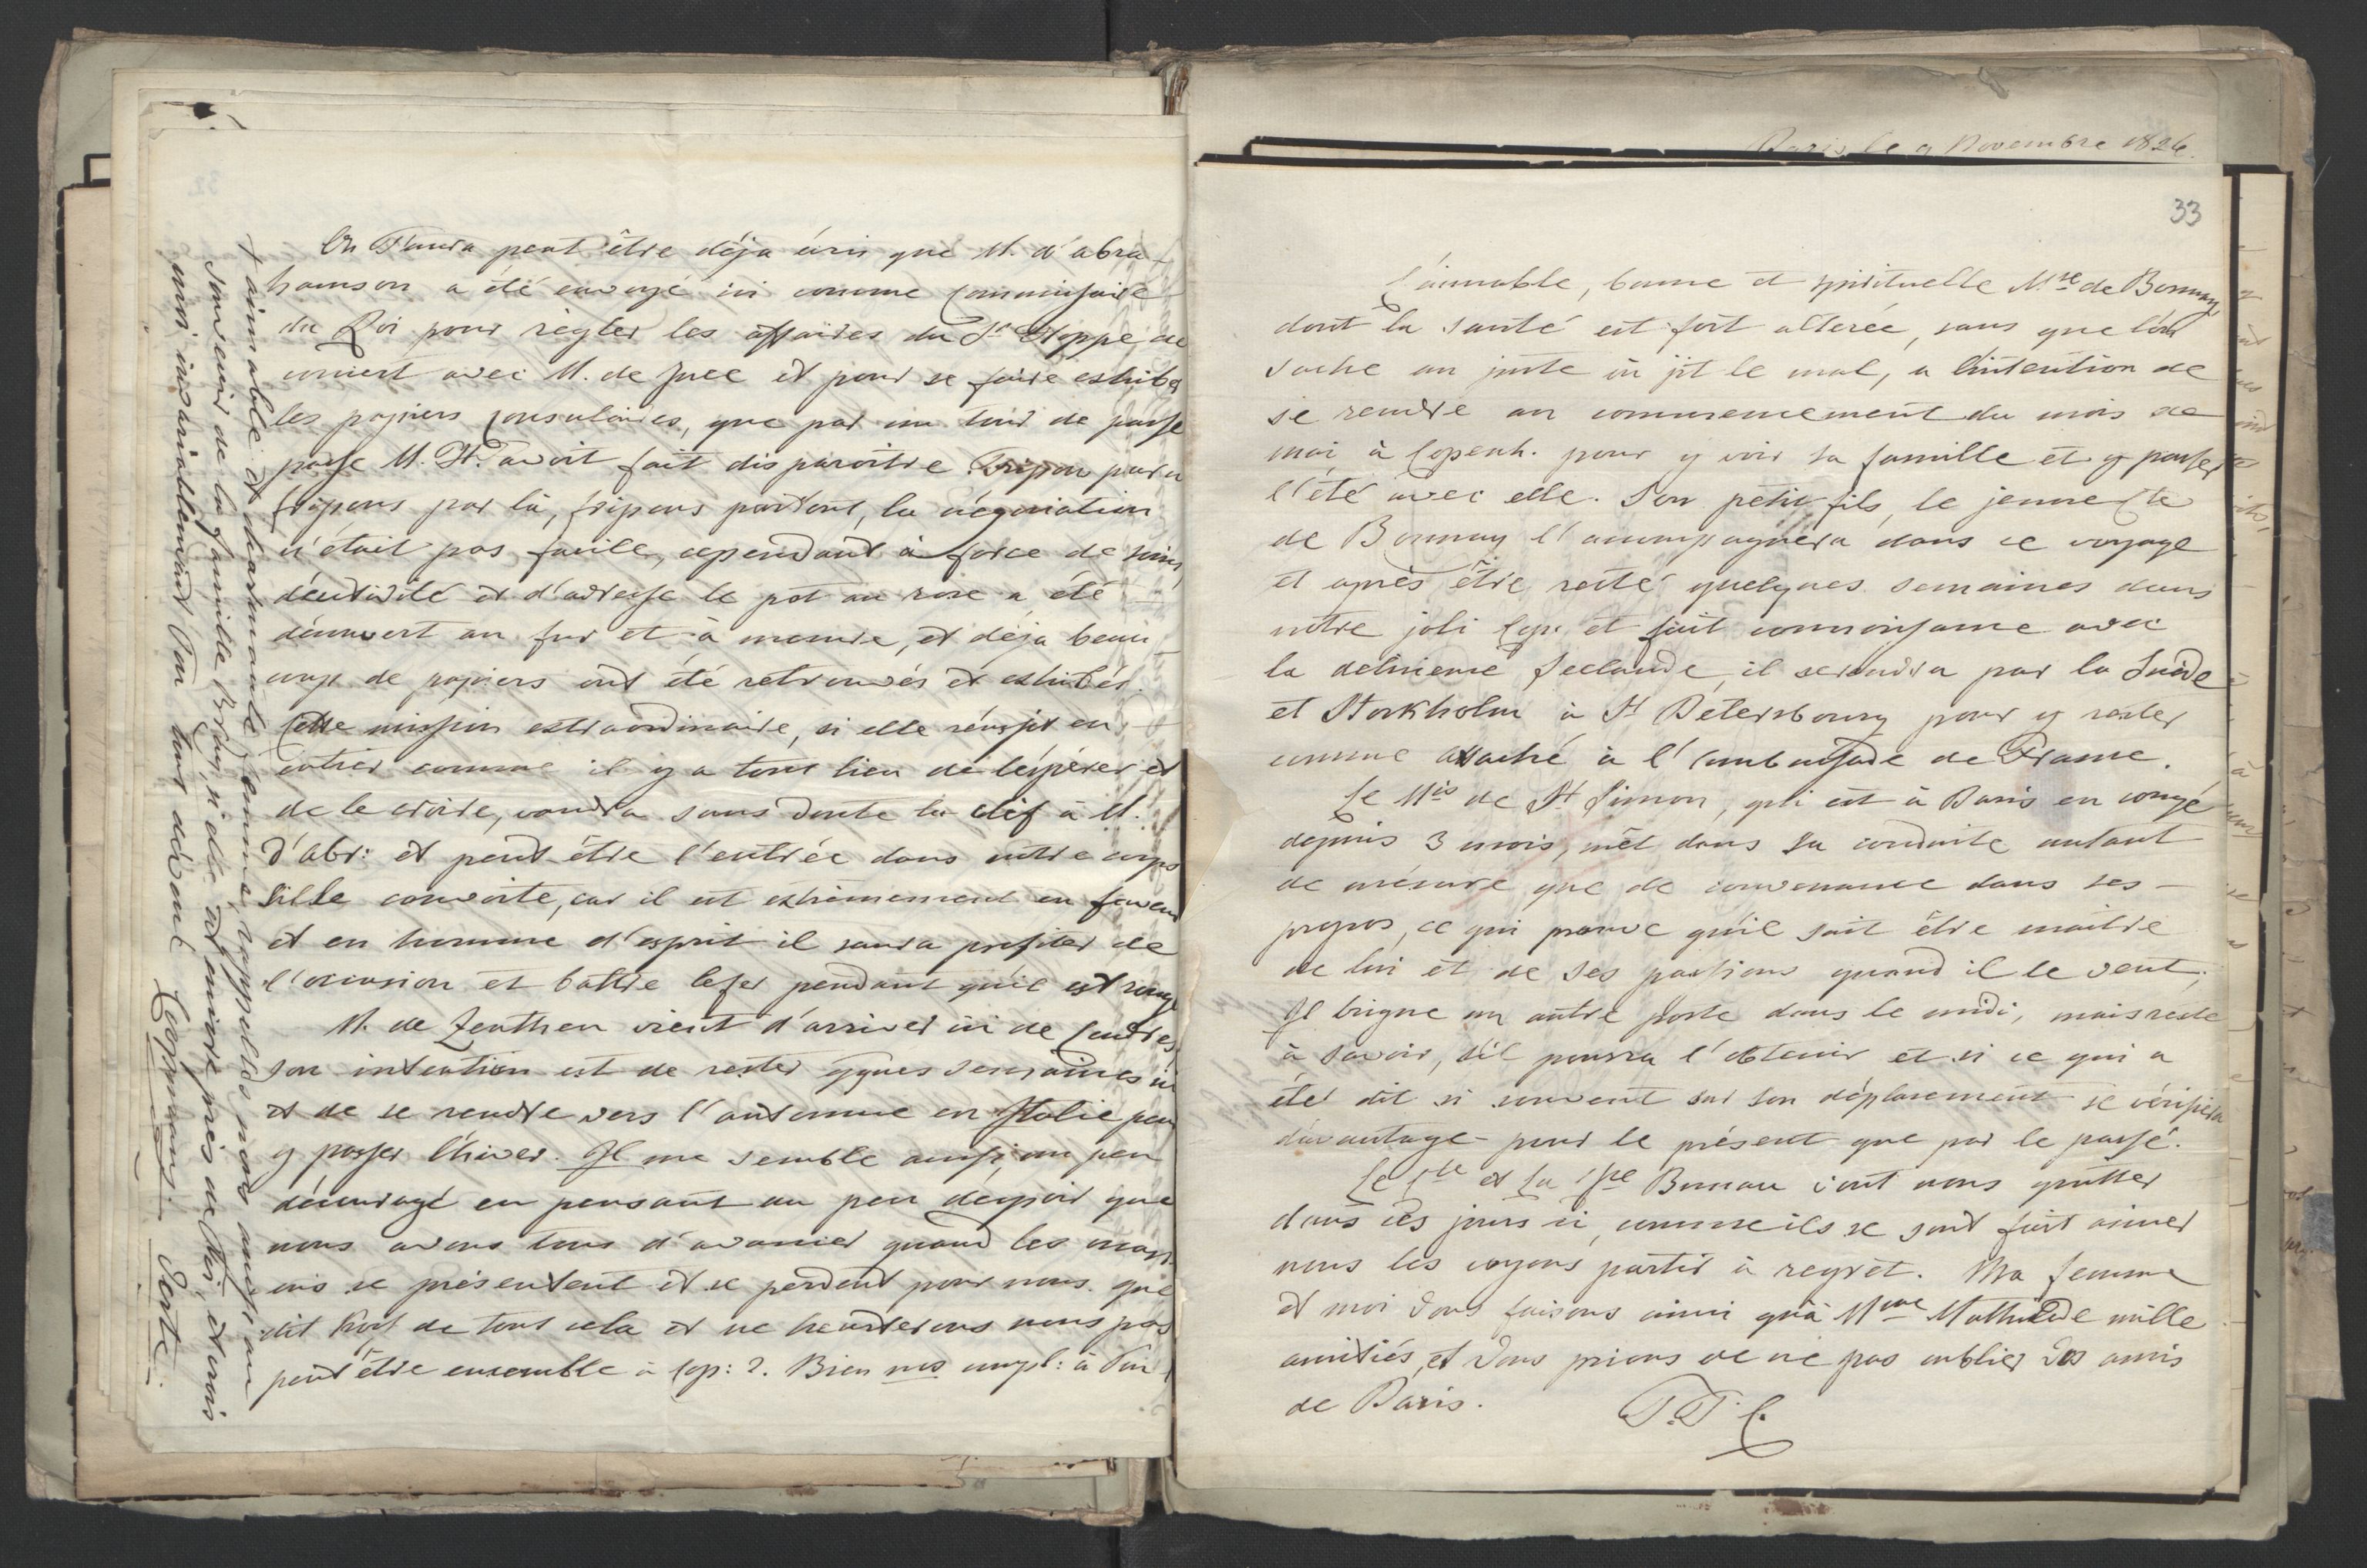 On t'aura peut être déja écris que M. d'abra-
hamson a été envoyé ici comme Commissaire
du Roi pour règler les affaires du Sr Hoppe, de
concert avec M. de Juel et pour se faire exhiber
les papiers Consulaires, que par un tour de passe
passe M. H. avoit fait disparoitre. Fripon par ci
fripons par là, fripons partout, la négociation
n'étoit pas facile, cependant à force de soins,
d'éactivité et d'adresse le pot au rose a été
découvert au fur et à mesure, et déja beau-
coup de papiers ont été retrouvés et exhibés.
Cette mission extraordinaire, si elle réussit en
entier comme il y a tout lieu de l'éspérer et
de le croire, vaudra sans doute la clef à M.
d'Abr: et peut-être l'entrée dans notre corps
s'il le convoite, car il est extrèmement en faveur
et en homme d'esprit il saura profiter de
l'occasion et battre le fer pendant qu'il est rouge
M. de Zeuthen vient d'arriver ici de Londres
son intention est de rester qques semaines ici
et de se rendre vers l'automne en Italie pour
y passer l'hiver. Il me semble aussi, un peu
découragé en pensant au peu d'éspoir que
nous avons tous d'avancer quand les occasi-
ons se présentent et se perdent pour nous. que
dit de tout cela et ne heurterons nous pas
peut être ensemble à Cop: ?. Bien nos compl: à Ton
aimable et charmante femme, rappelles nous aussi au
souvenir de la famille Bray, n'
moi invariablement Ton tout dévoué Coopmans. Verte.
Paris, le 9 Novembre 1826.
33
L'aimable, bonne et spirituelle Mise de Bonnay,
dont la santé est fort alterée, sans que l'on
sache au juste où git le mal, a l'intention de
se rendre au commencement du mois de
mai à Copenh. pour y voir sa famille et y passer
l'été avec elle. Son petit fils, le jeune Cte
de Bonnay l'accompagnera dans ce voyage
et après être resté quelques semaines dans
notre joli Cop: et fait connoissance avec
la delicieuse Seelande, il se rendra par la Suède
et Stockholm à St Petersbourg pour y rester
comme attaché à l'ambassade de France.
Le Mis de St Simon, qui est à Paris en congé
depuis 3 mois, mêt dans sa conduite autant
de mésure que de convenance dans ses
propos, ce qui prouve qu'il sait être maître
de lui et de ses passions quand il le veut,
Il brigue un autre poste dans le midi, mais reste
à savoir, s'il pourra l'obtenir et si ce qui a
été dit si souvent sur son déplacement se vérifiera
d'avantage pour le présent que par le passé.
Le Cte et la Csse Bunau vont nous quitter
dans ces jours ci, comme ils se sont fait aimer
nous les voyons partir à regrèt. Ma femme
et moi Vous faisons ainsi qu'à Mme Mathilde mille
amitiés, et Vous prions de ne pas oublier Vos amis
de Paris. T. T. C.